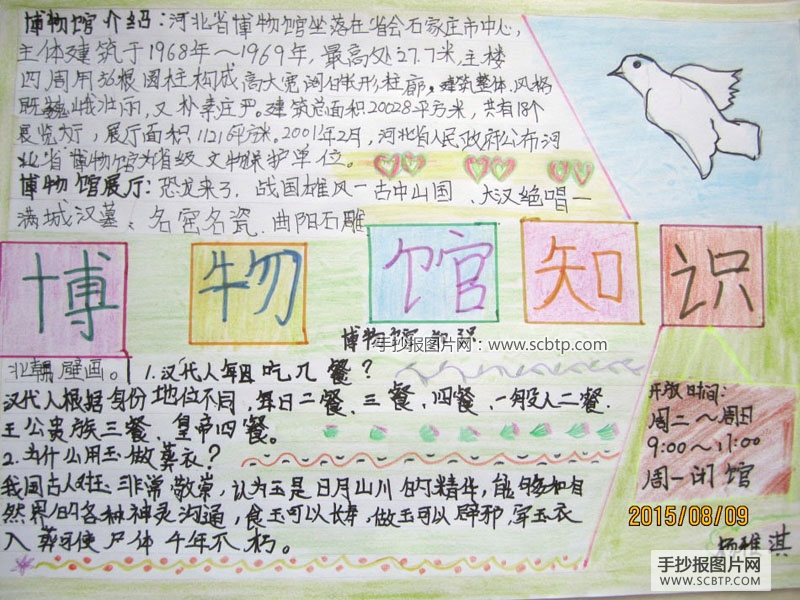 博物馆介绍：河北省博物馆坐落在省会石家庄市中心，
主体建筑于1968年～1969年，最高处27.7米，主楼
四周用 根圆柱构成高大宽阔的长形柱廊，建筑整体风格
既巍峨壮阔，又朴素庄严。建筑总面积20028平方米，共有18个
展览大厅，展厅面积 平方米。2001年2月，河北省人民政府公布河
北省博物馆为省级文物保护单位。
博物馆展厅：恐龙来了、战国雄风—古中山国、大汉绝唱—
满城汉墓、名窑名瓷、曲阳石雕
博物馆知识
博物馆知识
手抄报图片网：www.scbtp.com
北朝壁画。
1.汉代人每日吃几餐？
汉代人根据身份地位不同，每日二餐、三餐、四餐、一般人二餐.
王公贵族三餐、皇帝四餐。
2.为什么用玉做葬衣？
我国古人对玉非常敬崇，认为玉是日月山川的精华，能够和自
然界的各种神灵沟通，食玉可以长寿，做玉可以辟邪，穿玉衣
入葬可使尸体千年不朽。
开放时间：
周二～周日
9:00～17:00
周一闭馆
2015/08/09
杨 淇
手抄报图片网
WWW.SCBTP.COM